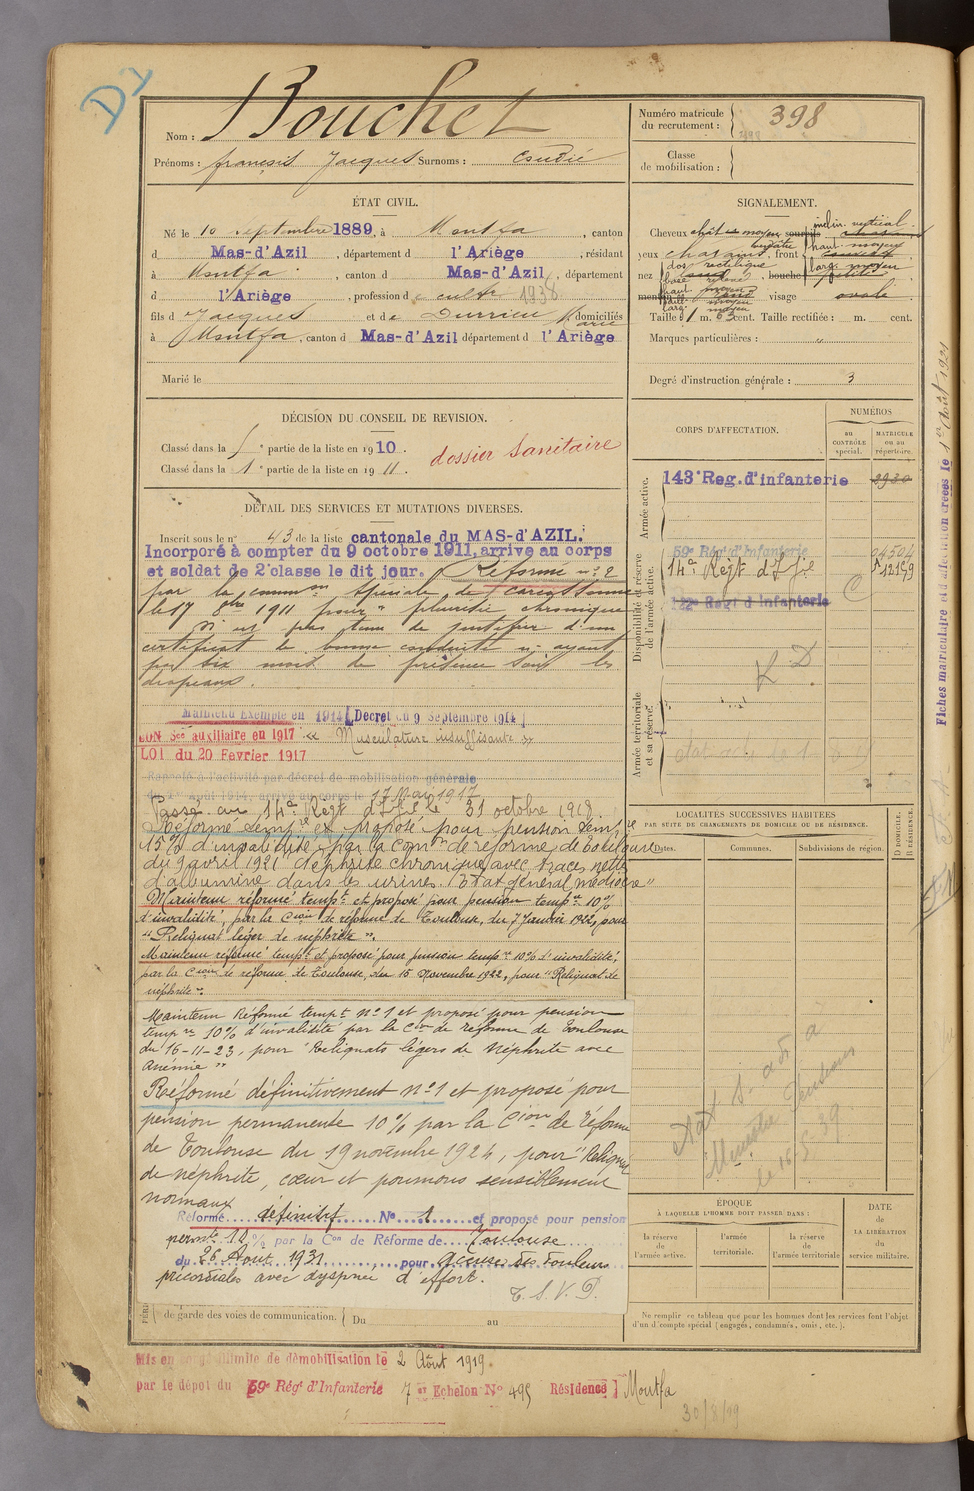 Nom : Bouchet
Prénoms : françois Jacques Surnoms :
Numéro matricule
du recrutement : 398
Classe
de mobilisation :
ÉTAT CIVIL.
Né le 10 septembre 1889, à Montfa, canton
d Mas-d'Azil, département d l'Ariège, résidant
à Montfa, canton d Mas-d'Azil, département
d l'Ariège, profession d cultr 1938
fils d Jacques et de Durrieu Marie domiciliés
à Montfa, canton d Mas-d'Azil département d l'Ariège
Marié le
SIGNALEMENT.
Cheveux chât moyen sourcils
inclin. vertical
yeux chatains, front
haut. moyen
larg. moyen
nez dos rectiligne, bouche
menton visage ovale
Taille : 1 m. 63 cent. Taille rectifiée : m. cent.
Marques particulières : "
Degré d'instruction générale : 3
DÉCISION DU CONSEIL DE REVISION.
Classé dans la 5e partie de la liste en 1910.
Classé dans la 1e partie de la liste en 1911.
dossier sanitaire
DÉTAIL DES SERVICES ET MUTATIONS DIVERSES.
Inscrit sous le n° 43 de la liste cantonale du MAS-d'AZIL.
Incorporé à compter du 9 octobre 1911, arrivé au corps
et soldat de 2e classe le dit jour. Réformé n° 2
par la comm on spéciale de Carcassonne
le 17 8bre 1911 pour " pleurésie chronique
N'est pas tenu de justifier d'un
certificat de bonne conduite n'ayant
pas six mois de présence sous les
drapeaux.
Maintenu Exempté en 1914 [Décret du 9 Septembre 1914]
BON Sce auxiliaire en 1917 « Musculature insuffisante »
LOI du 20 Février 1917
Rappelé à l'activité par décret de mobilisation générale
du 1er Août 1914, arrivé au corps le 17 Mai 1917
Passé au 14e Régt d'Ifie le 31 octobre 1918
Réformé tempre et proposé pour pension tempre
15% d'invalidité par la Comon de réforme de Toulouse
du 9 avril 1921 "néphrite chronique avec traces nettes
d'albumine dans les urines. Etat général médiocre"
Maintenu réformé tempt et proposé pour pension tempre 10%
d'invalidité, par la Cion de réforme de Toulouse, du 7 Janvier 1922, pour
"Reliquat léger de néphrite".
Maintenu réformé tempt et proposé pour pension tempre 10% d'invalidité,
par la Cion de réforme de Toulouse, du 15 Novembre 1922, pour "Reliquat de
néphrite".
Maintenu Réformé tempt n°1 et proposé pour pension
tempre 10% d'invalidité par la Con de réforme de Toulouse
du 16-11-23, pour "Reliquats légers de Néphrite avec
Anémie"
Réformé définitivement n°1 et proposé pour
pension permanente 10% par la Cion de Réforme
de Toulouse du 19 novembre 1924, pour "Reliquat
de néphrite, cœur et poumons sensiblement
normaux
Réformé définitif No 1 et proposé pour pension
permte 10% par la Con de Réforme de Toulouse
du 26 Aout 1931 pour accuse des douleurs
précordiales avec dyspnée d'effort.
T. S. V. P.
de garde des voies de communication. { Du au
CORPS D'AFFECTATION.
NUMÉROS
au
CONTRÔLE
spécial.
MATRICULE
ou au
répertoire.
Armée active.
143e Reg. d'infanterie 2930
Disponibilité et réserve
de l'armée active.
59e Régt d'Infanterie 04504
14e Régt d'Ifie 12199
Regt d'Infanterie
Armée territoriale
et sa réserve.
LOCALITÉS SUCCESSIVES HABITÉES
PAR SUITE DE CHANGEMENTS DE DOMICILE OU DE RÉSIDENCE.
Dates.
Communes.
Subdivisions de région.
D DOMICILE.
R RÉSIDENCE.
le 16-5-39
ÉPOQUE
À LAQUELLE L'HOMME DOIT PASSER DANS :
la réserve
de
l'armée active.
l'armée
territoriale.
la réserve
de
l'armée territoriale
DATE
de
LA LIBÉRATION
du
service militaire.
Ne remplir ce tableau que pour les hommes dont les services font l'objet
d'un d compte spécial (engagés, condamnés, omis, etc.).
Mis en congé illimité de démobilisation le 2 Août 1919.
par le dépôt du 59e Régt d'Infanterie 7 em Echelon No 495 Résidence Montfa
30/8/19
Fiches matriculaire et d'affectation créées le 1er Août 1921